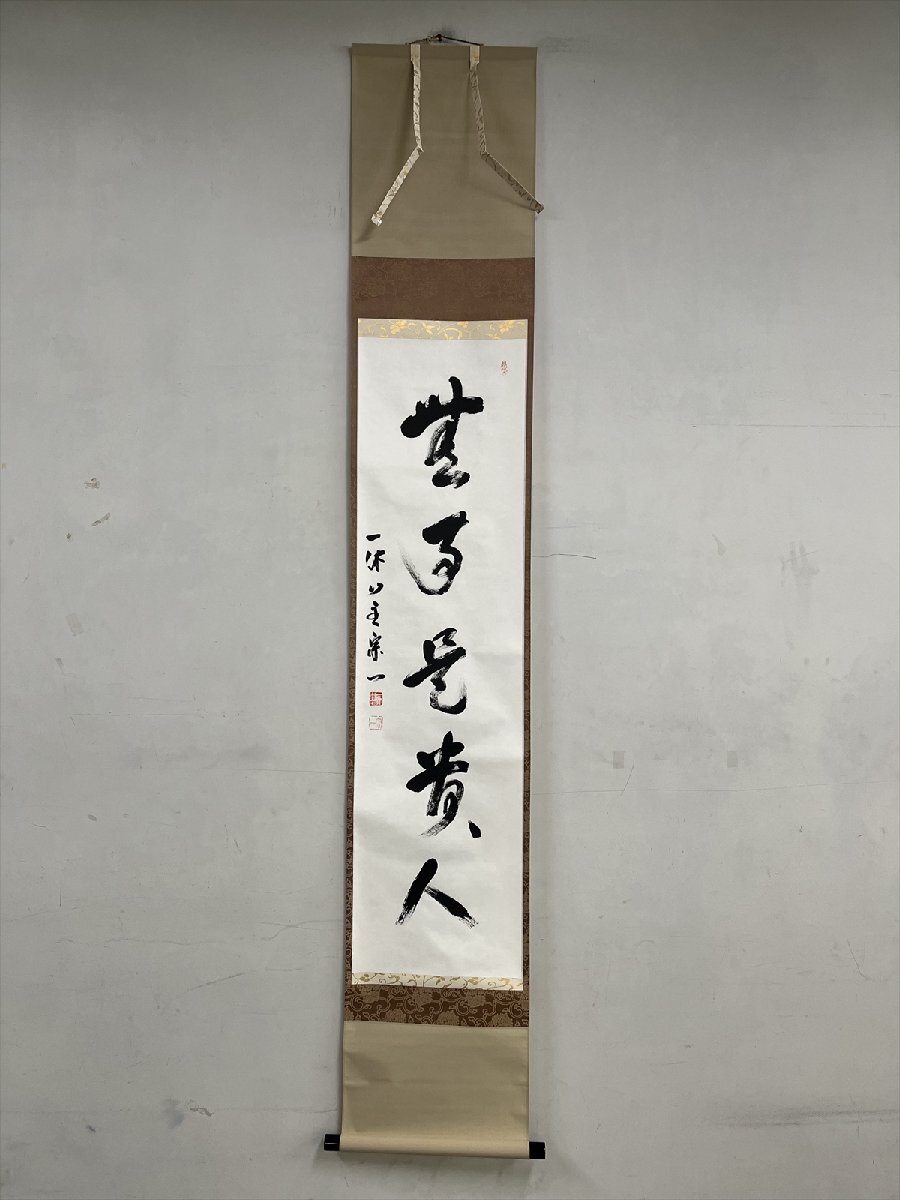 無事是貴人
一休山主宗一